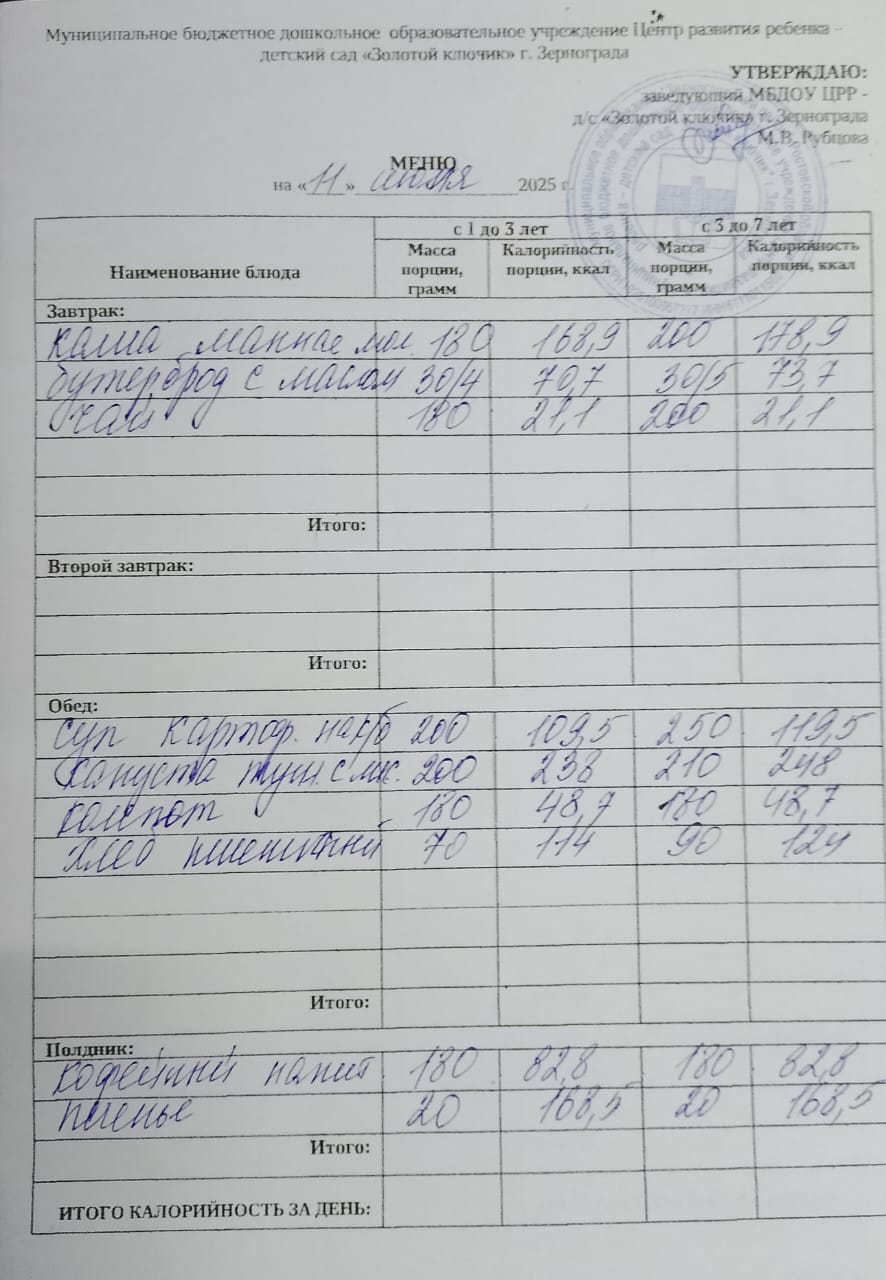 Муниципальное бюджетное дошкольное образовательное учреждение Центр развития ребенка –
детский сад «Золотой ключик» г. Зернограда
УТВЕРЖДАЮ:
заведующий МБДОУ ЦРР -
д/с «Золотой ключик» г. Зернограда
М.В. Рубцова
МЕНЮ
на «11» июня 2025 г.
Наименование блюда
с 1 до 3 лет
с 3 до 7 лет
Масса порции, грамм
Калорийность порции, ккал
Масса порции, грамм
Калорийность порции, ккал
Завтрак:
каша манная мол. 180 168,9 200 178,9
бутерброд с маслом 30/4 70,7 30/5 73,7
чай 180 21,1 200 21,1
Итого:
Второй завтрак:
Итого:
Обед:
суп картоф. на к/б 200 109,5 250 119,5
капуста туш. с мяс. 200 238 210 248
компот 180 48,7 180 48,7
хлеб пшеничный 70 114 90 124
Итого:
Полдник:
кофейный напит 180 82,8 180 82,8
печенье 20 168,5 20 168,5
Итого:
ИТОГО КАЛОРИЙНОСТЬ ЗА ДЕНЬ: